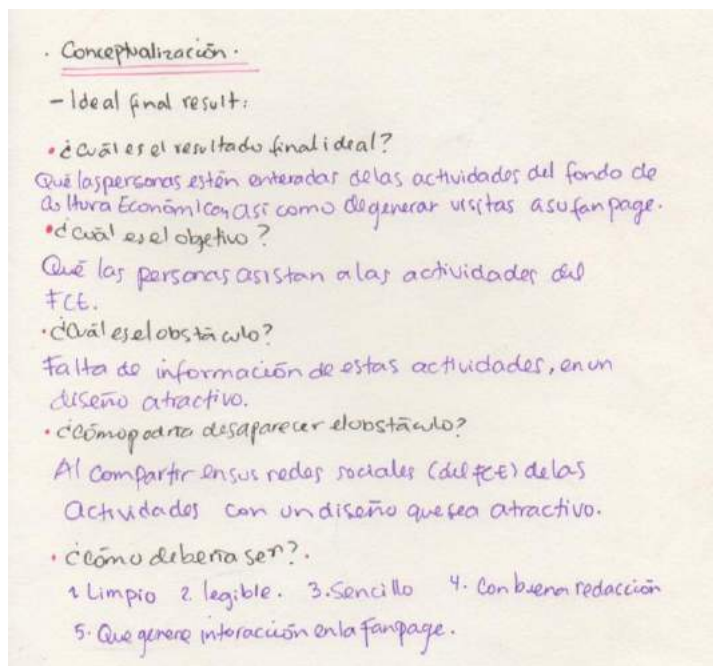 . Conceptualización.
- Ideal final result:
• ¿cuál es el resultado final ideal?
Qué las personas estén enteradas de las actividades del fondo de
cultura Económica, así como de generar visitas a su fanpage.
• ¿cuál es el objetivo?
Qué las personas asistan a las actividades del
FCE.
• ¿Cuál es el obstáculo?
Falta de información de estas actividades, en un
diseño atractivo.
• ¿Cómo podría desaparecer el obstáculo?
Al compartir en sus redes sociales (del FCE) de las
Actividades con un diseño que sea atractivo.
• ¿cómo debería ser?.
1 Limpio 2 legible. 3. Sencillo 4. Con buena redacción
5. Que genere interacción en la fanpage.